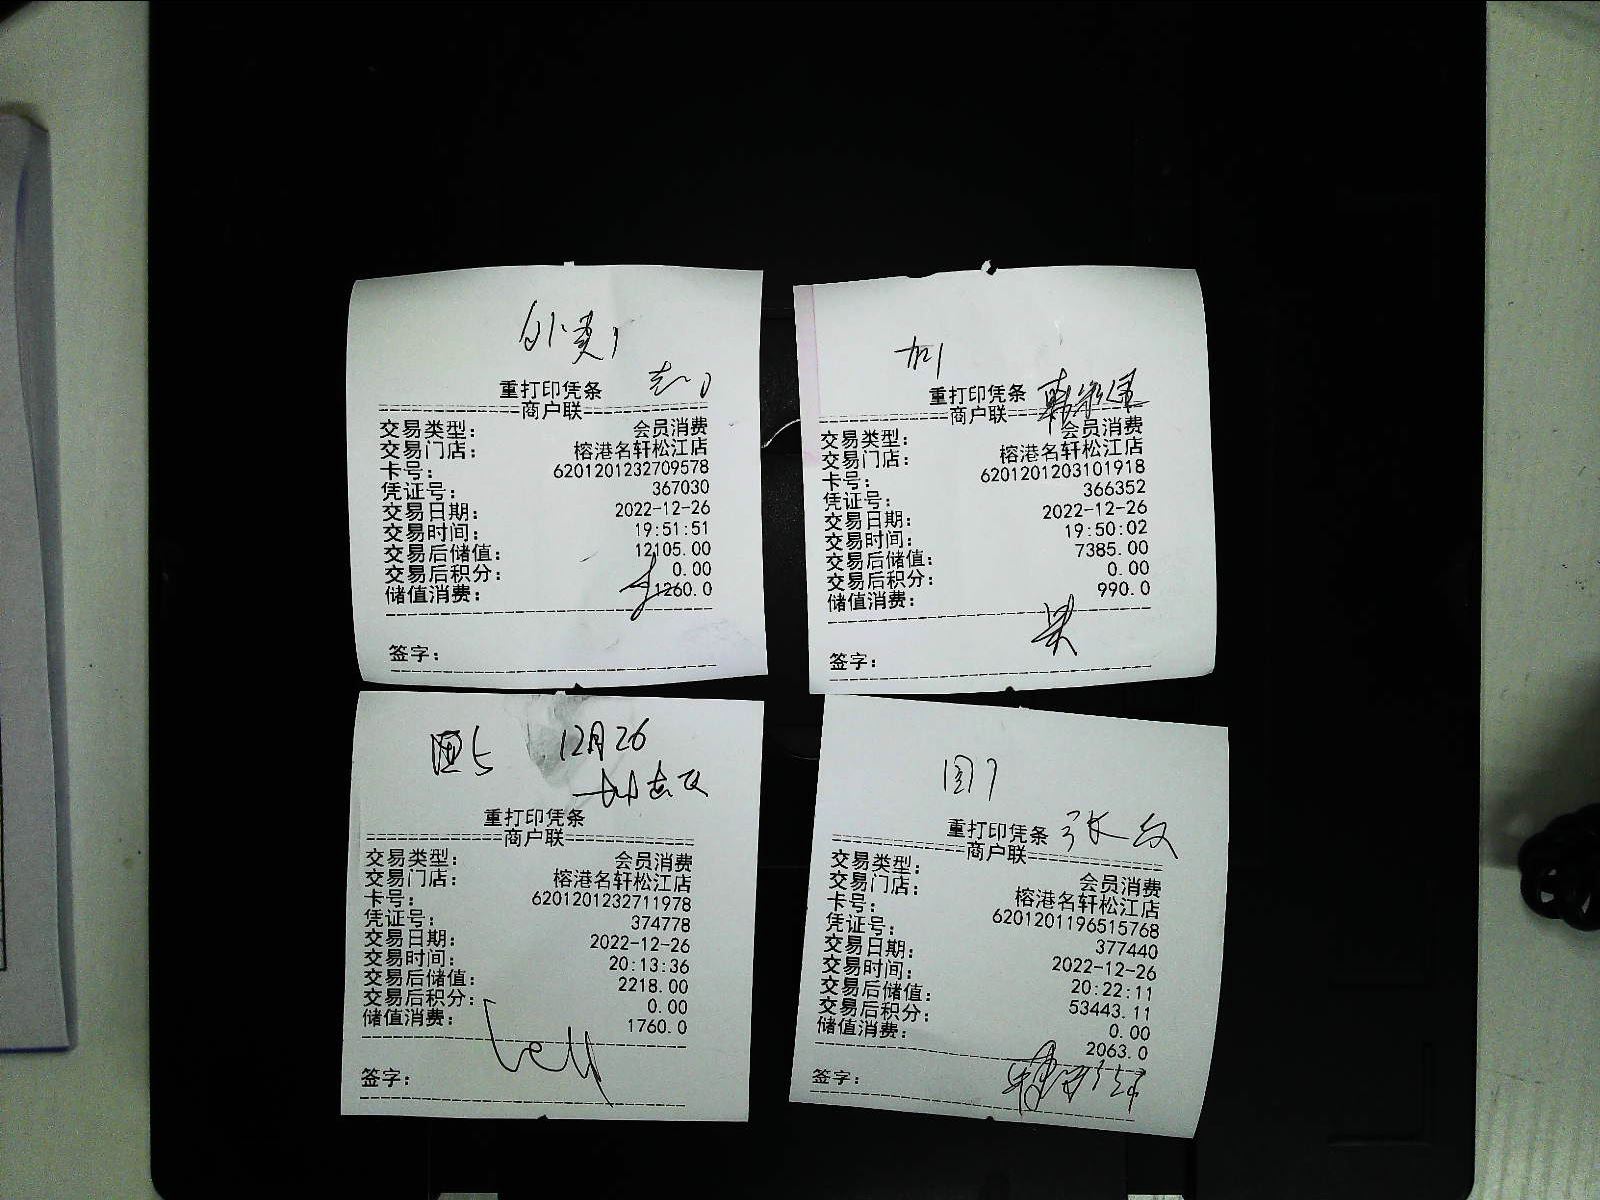 外卖1
重打印凭条
商户联
交易类型： 会员消费
交易门店： 榕港名轩松江店
卡号： 6201201232709578
凭证号： 367030
交易日期： 2022-12-26
交易时间： 19:51:51
交易后储值： 12105.00
交易后积分： 0.00
储值消费： 1260.0
签字：
加1
重打印凭条
商户联
交易类型： 会员消费
交易门店： 榕港名轩松江店
卡号： 6201201203101918
凭证号： 366352
交易日期： 2022-12-26
交易时间： 19:50:02
交易后储值： 7385.00
交易后积分： 0.00
储值消费： 990.0
签字：
12月26
重打印凭条
商户联
交易类型： 会员消费
交易门店： 榕港名轩松江店
卡号： 6201201232711978
凭证号： 374778
交易日期： 2022-12-26
交易时间： 20:13:36
交易后储值： 2218.00
交易后积分： 0.00
储值消费： 1760.0
签字：
重打印凭条
商户联
交易类型： 会员消费
交易门店： 榕港名轩松江店
卡号： 6201201196515768
凭证号： 377440
交易日期： 2022-12-26
交易时间： 20:22:11
交易后储值： 53443.11
交易后积分： 0.00
储值消费： 2063.0
签字：